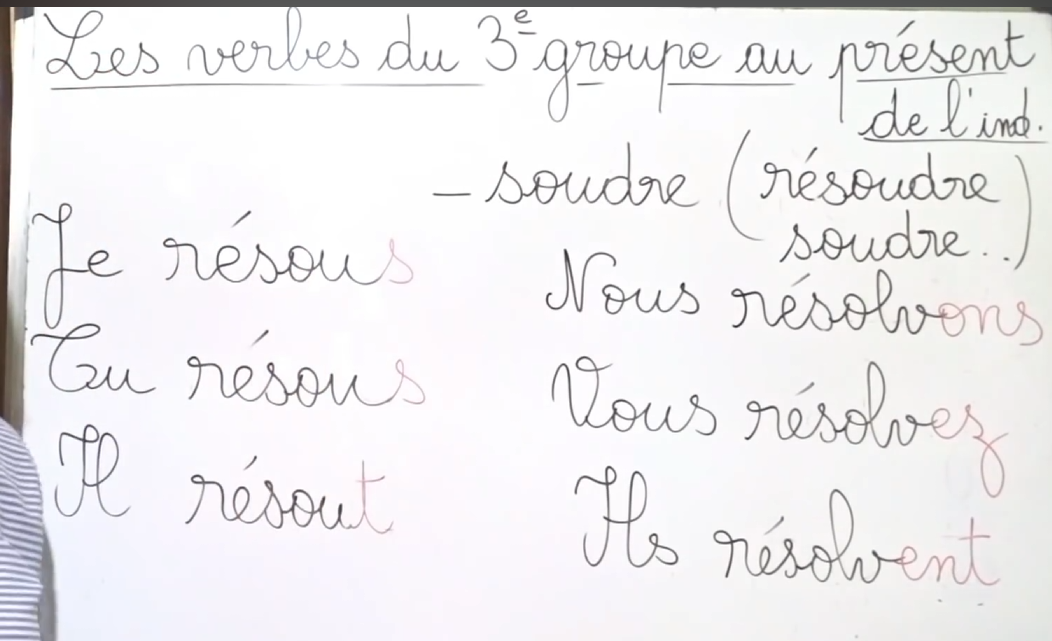 Les verbes du 3e groupe au présent
de l'ind.
- soudre (résoudre
soudre..)
Je résous
Tu résous
Il résout
Nous résolvons
Vous résolvez
Ils résolvent